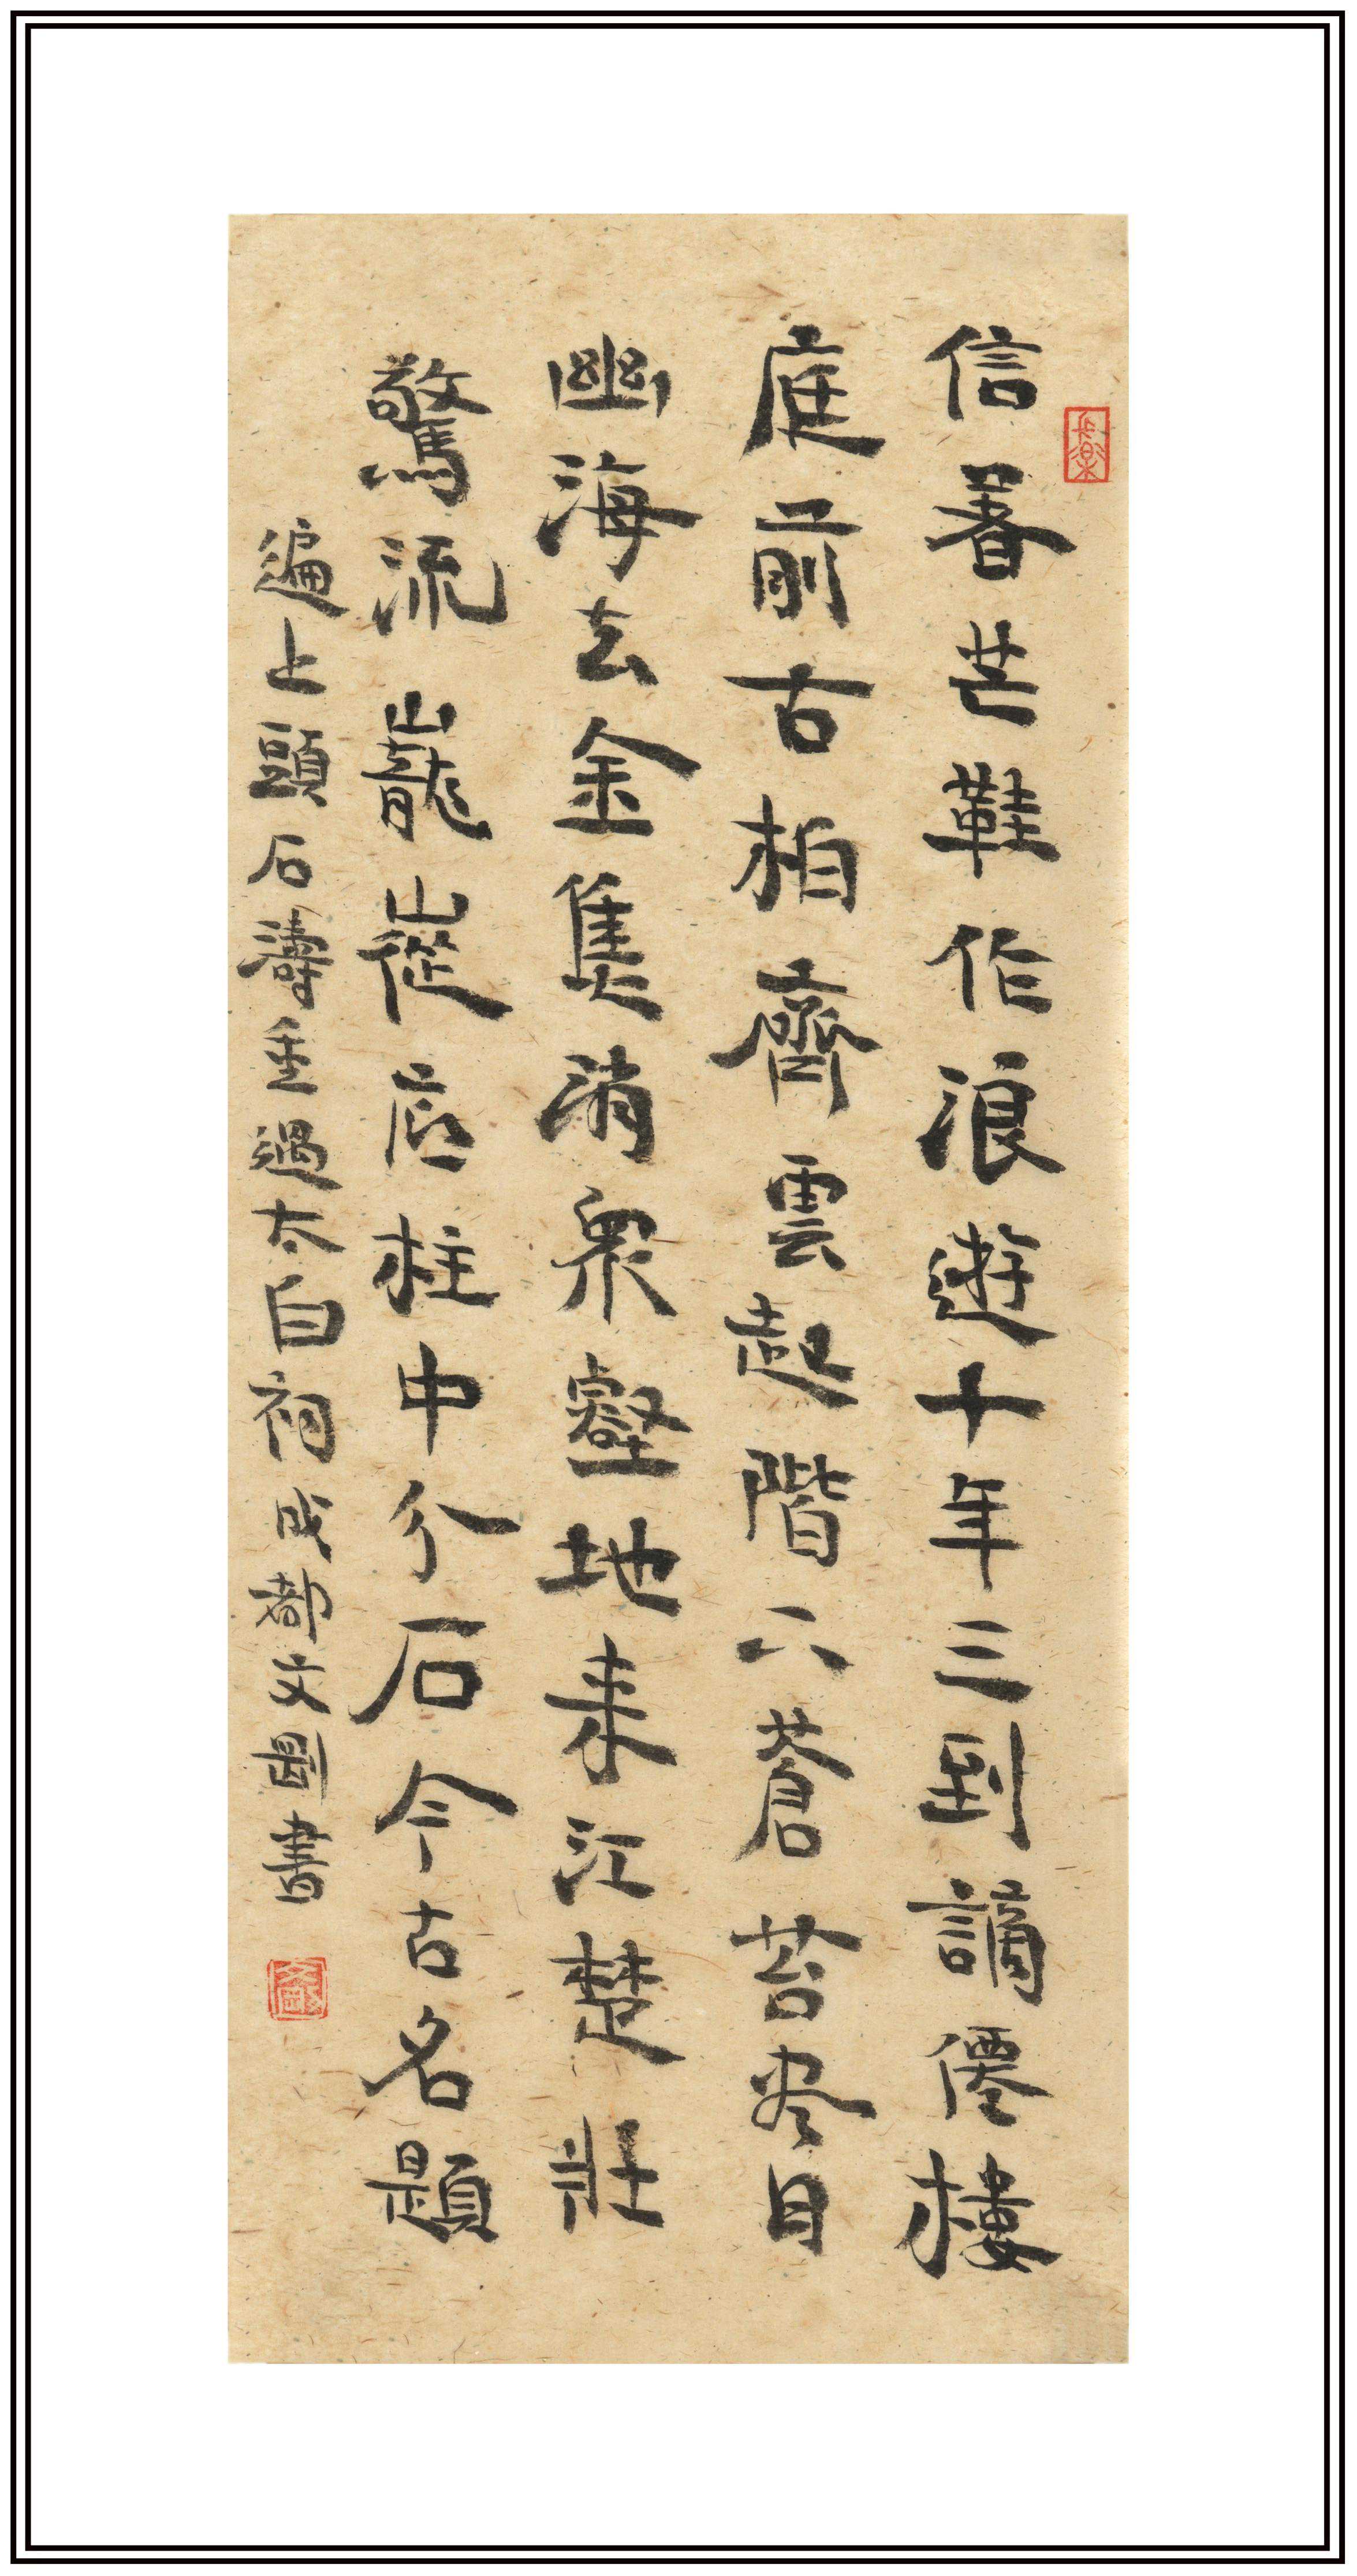 信着芒鞋作浪遊十年三到謫僊樓
庭前古柏齊雲起階下蒼苔尽目
幽海去金焦消衆壑地来江楚壯
驚流巃嵸底柱中分石今古名題
遍上頭石濤重過太白祠成都文國書
長樂